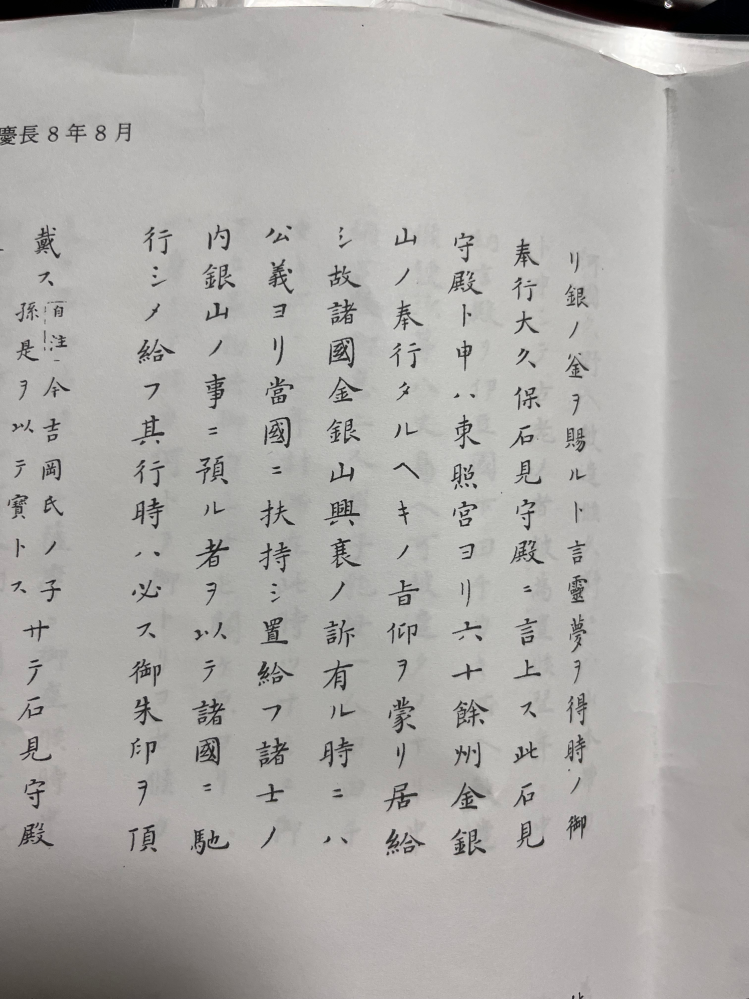 慶長8年8月
リ銀ノ釜ヲ賜ルト言靈夢ヲ得時ノ御
奉行大久保石見守殿ニ言上ス此石見
守殿ト申ハ東照宮ヨリ六十餘州金銀
山ノ奉行タルヘキノ旨仰ヲ蒙リ居給
シ故諸國金銀山興衰ノ訴有ル時ニハ
公義ヨリ當國ニ扶持シ置給フ諸士ノ
内銀山ノ事ニ預ル者ヲ以テ諸國ニ馳
行シメ給フ其行時ハ必ス御朱印ヲ頂
戴ス
今吉岡氏ノ子
孫是ヲ以テ寶トス
サテ石見守殿